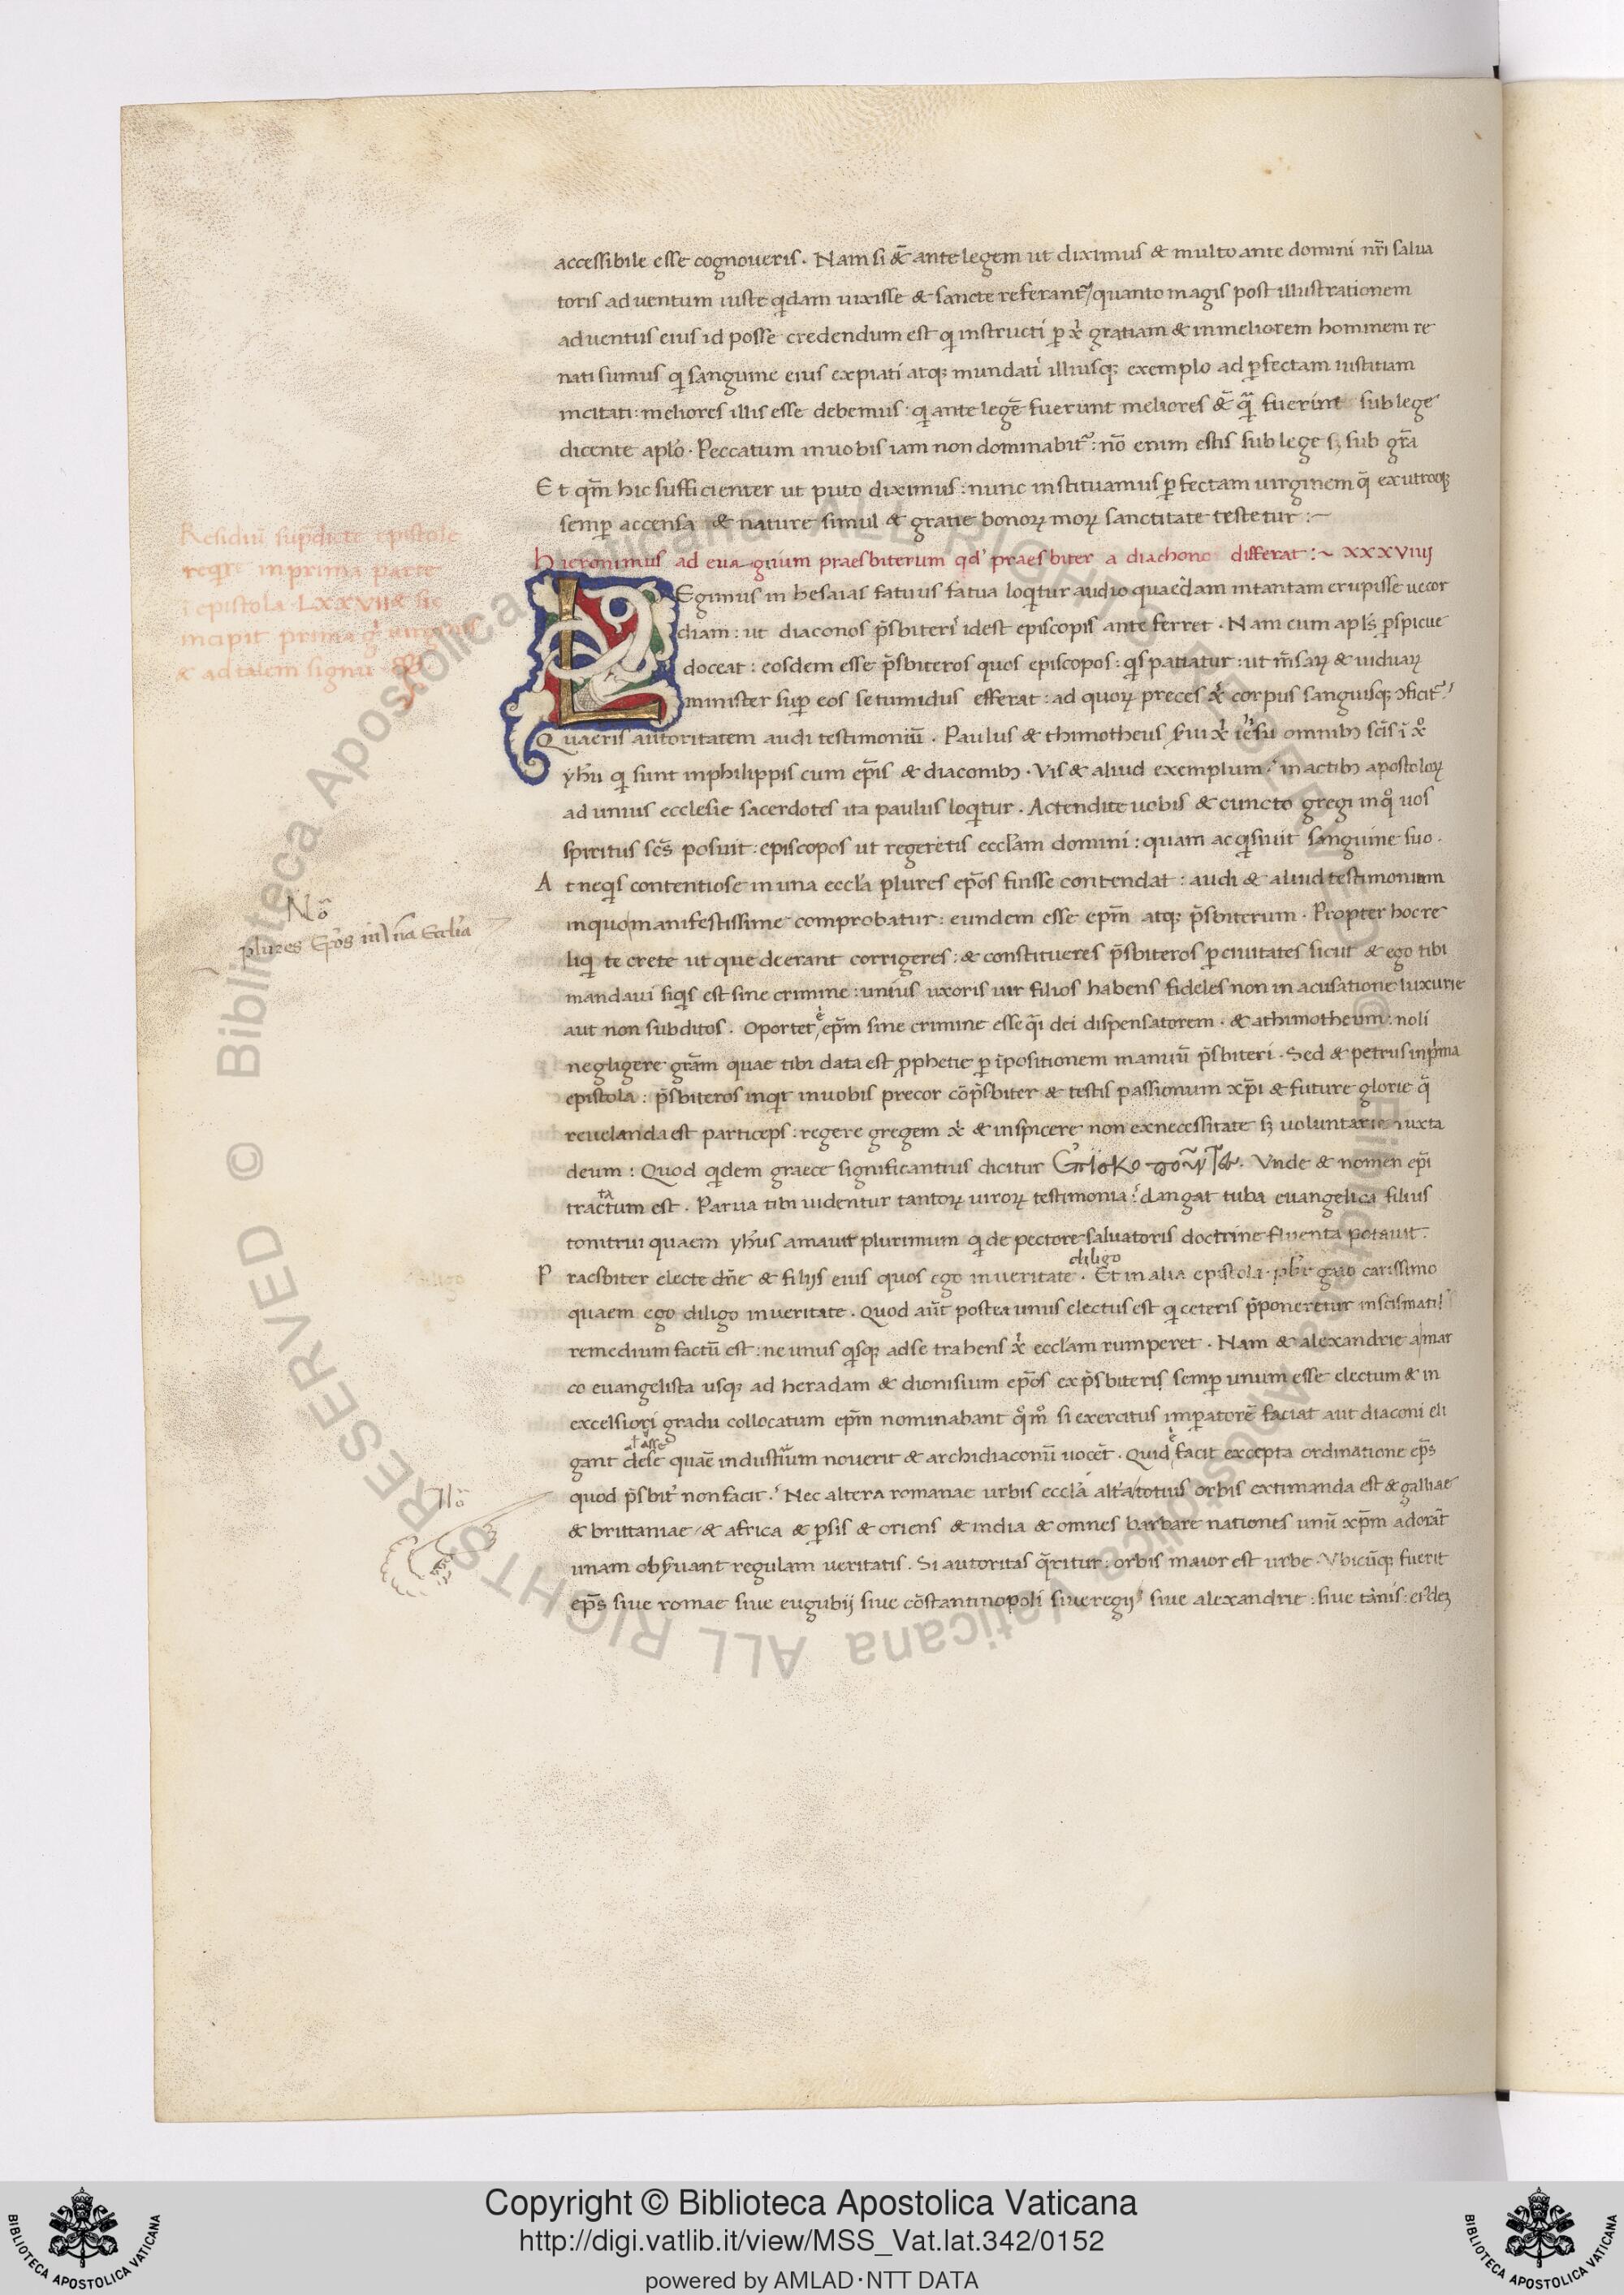 accessibile esse cognoueris. Nam si & ante legem ut diximus & multo ante domini nr̃i salua
toris aduentum iuste qdam uixisse & sancte referant᷑ / quanto magis post illustrationem
aduentus eius id posse credendum est q instructi p xp̃i gratiam & in meliorem hominem re
nati sumus q sanguine eius expiati atq; mundati illiusq; exemplo ad pfectam iustitiam
incitati: meliores illis esse debemus: q ante legẽ fuerunt meliores & q̃ fuerint sub lege
dicente aplo. Peccatum in uobis iam non dominabit᷑: nõ enim estis sub lege s; sub gr̃a
Et qm̃ hic sufficienter ut puto diximus: nunc instituamus pfectam uirginem q̃ ex utroq;
semp accensa & nature simul & gratie bonoꝝ moꝝ sanctitate testetur:~
Residuũ sup̃dicte epistole
reqre in prima parte
ĩ epistola LXXVII & sic
incipit prima
& ad talem signũ
hieronimus ad euagrium praesbiterum qd' praesbiter a diachono differat:~ xxxviiij
LEgimus in hesaias fatuus fatua loqtur audio quaedam in tantam erupisse uecor
diam: ut diaconos p̃sbiteri idest episcopis ante ferret. Nam cum apls pspicue
doceat: eosdem esse p̃sbiteros quos episcopos: qs patiatur: ut m̃saꝝ & uiduaꝝ
minister sup eos se tumidus efferat: ad quoꝝ preces xp̃i corpus sanguisq; ↄficit᷑?
Quaeris autoritatem audi testimoniũ. Paulus & thimotheus sui xp̃i iesu omnib; scĩs ĩ xp̃o
yhu q sunt in philippis cum ep̃is & diaconib;. Vis & aliud exemplum? in actib; apostoloꝝ
ad unius ecclesie sacerdotes ita paulus loqtur. Actendite uobis & cuncto gregi in qo uos
spiritus scs̃ posuit: episcopos ut regeretis eccl'am domini: quam acqsiuit sanguine suo.
At neqs contentiose in una eccl'a plures ep̃os fuisse contendat: audi & aliud testimonium
Nõ
plures Ep̃os in Vna Eccl'ia
in quo manifestissime comprobatur: eundem esse ep̃m atq; p̃sbiterum. Propter hoc re
liqi te crete ut que deerant corrigeres: & constitueres p̃sbiteros p ciuitates sicut & ego tibi
mandaui siqs est sine crimine: unius uxoris uir filios habens fideles non in acusatione luxurie
aut non subditos. Oportet ẽ ep̃m sine crimine esse q̃i dei dispensatorem. & a thimotheum: noli
negligere gr̃am quae tibi data est pphetie p ĩpositionem manuũ p̃sbiteri. Sed & petrus in prima
epistola: p̃sbiteros inqt in uobis precor cõp̃sbiter & testis passionum xp̃i & future glorie q̃
reuelanda est particeps: regere gregem xp̃i & inspicere non ex necessitate s; uoluntarie iuxta
deum: Quod qdem graece significantius dicitur. Vnde & nomen ep̃i
ta
tractum est. Parua tibi uidentur tantoꝝ uiroꝝ testimonia? clangat tuba euangelica filius
tonitrui quaem yhus amauit plurimum q de pectore saluatoris doctrine fluenta potauit.
diligo
Praesbiter electe dñe & filijs eius quos ego in ueritate. Et in alia epistola. pbr gaio carissimo
quaem ego diligo in ueritate. Quod aũt postea unus electus est q ceteris p̃poneretur in scismatis
remedium factũ est: ne unus qsq; ad se trahens xp̃i eccl'am rumperet. Nam & alexandrie a mar
co euangelista usq; ad heradam & dionisium ep̃os ex p̃sbiteris semp unum esse electum & in
excelsiori gradu collocatum ep̃m nominabant qomo si exercitus impatorẽ faciat aut diaconi eli
al' asse
gant dese quaẽ industrium nouerit & archidiaconũ uocẽt. Quid ẽ facit excepta ordinatione ep̃s
Nõ
quod p̃sbit' non facit? Nec altera romanae urbis eccl'a alt'a totius orbis extimanda est & galliae
& brittaniae & africa & psis & oriens & india & omnes barbare nationes unũ xp̃m adorãt
unam obs̃uant regulam ueritatis. Si autoritas q̃ritur: orbis maior est urbe. Vbicũq; fuerit
ep̃s siue romae siue eugubij siue cõstantinopoli siue regij siue alexandrie: siue tanis: eisdeȝ
Copyright © Biblioteca Apostolica Vaticana
http://digi.vatlib.it/view/MSS_Vat.lat.342/0152
powered by AMLAD·NTT DATA
BIBLIOTECA APOSTOLICA VATICANA
BIBLIOTECA APOSTOLICA VATICANA